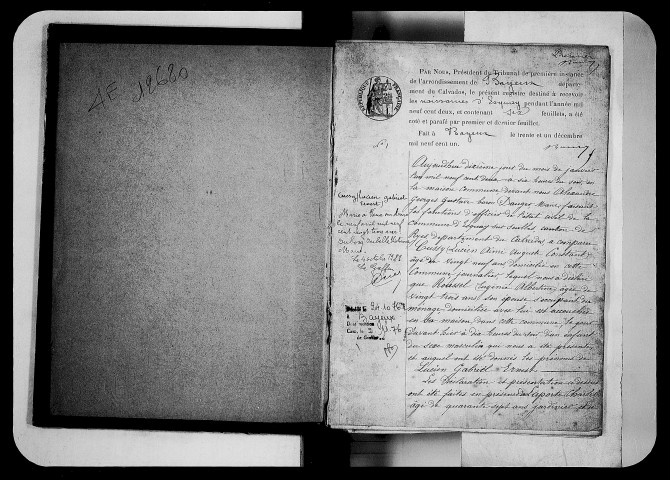 4E 12680
PAR NOUS, Président du Tribunal de première instance
de l'arrondissement de Bayeux département
du Calvados, le présent registre destiné à recevoir
les naissances d'Esquay pendant l'année mil
neuf cent deux, et contenant six feuillets, a été
coté et parafé par premier et dernier feuillet.
Fait à Bayeux le trente et un décembre
mil neuf cent un.
N° 1
Cussy Lucien Gabriel
Ernest
Aujourd'hui dixième jour du mois de janvier
l'an mil neuf cent deux à six heures du soir, en
la maison commune devant nous Alexandre
Georges Gustave baron Dauger Maire faisant
les fonctions d'officier de l'état civil de la
commune d'Esquay sur Seulles canton de
Ryes département du Calvados a comparu
Cussy Lucien Aimé Auguste Constant
âgé de vingt neuf ans domicilié en cette
Commune, journalier lequel nous a déclaré
que Roussel Eugénie Albertine âgée de
vingt trois ans son épouse s'occupant du
ménage domiciliée avec lui est accouchée
en sa maison dans cette commune le jour
d'avant hier à dix heures du soir d'un enfant
du sexe masculin qui nous a été présenté
et auquel ont été donnés les prénoms de
Lucien Gabriel Ernest
Les déclaration et présentation ci dessus
ont été faites en présence de Laporte
âgé de quarante sept ans jardinier
Marié à
le neuf avril mil neuf
cent vingt trois avec
Le Greffier
Bayeux